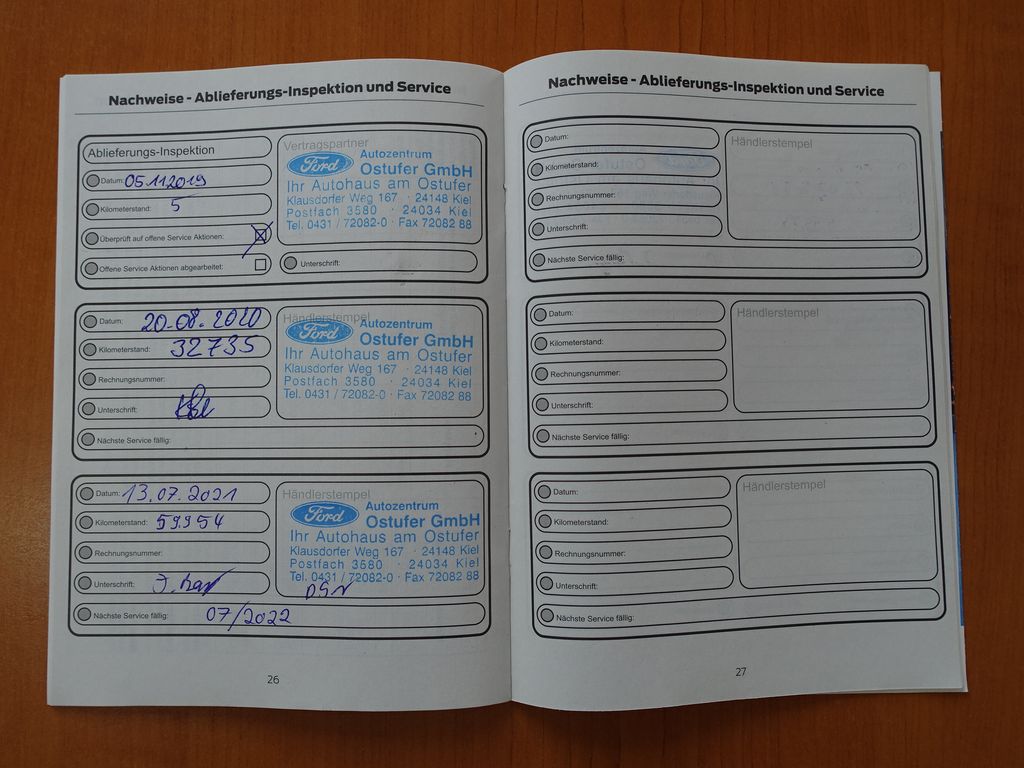 Nachweise - Ablieferungs-Inspektion und Service
Ablieferungs-Inspektion
Datum: 05.11.2019
Kilometerstand: 5
Überprüft auf offene Service Aktionen:
Offene Service Aktionen abgearbeitet:
Vertragspartner
Ford
Autozentrum
Ostufer GmbH
Ihr Autohaus am Ostufer
Klausdorfer Weg 167 · 24148 Kiel
Postfach 3580 · 24034 Kiel
Tel. 0431 / 72082-0 · Fax 72082 88
Unterschrift:
Datum: 20-08.2020
Kilometerstand: 32735
Rechnungsnummer:
Unterschrift:
Nächste Service fällig:
Händlerstempel
Ford
Autozentrum
Ostufer GmbH
Ihr Autohaus am Ostufer
Klausdorfer Weg 167 · 24148 Kiel
Postfach 3580 · 24034 Kiel
Tel. 0431 / 72082-0 · Fax 72082 88
Datum: 13.07.2021
Kilometerstand: 59954
Rechnungsnummer:
Unterschrift:
Nächste Service fällig: 07/2022
Händlerstempel
Ford
Autozentrum
Ostufer GmbH
Ihr Autohaus am Ostufer
Klausdorfer Weg 167 · 24148 Kiel
Postfach 3580 · 24034 Kiel
Tel. 0431 / 72082-0 · Fax 72082 88
26
Nachweise - Ablieferungs-Inspektion und Service
Datum:
Kilometerstand:
Rechnungsnummer:
Unterschrift:
Nächste Service fällig:
Händlerstempel
Datum:
Kilometerstand:
Rechnungsnummer:
Unterschrift:
Nächste Service fällig:
Händlerstempel
Datum:
Kilometerstand:
Rechnungsnummer:
Unterschrift:
Nächste Service fällig:
Händlerstempel
27